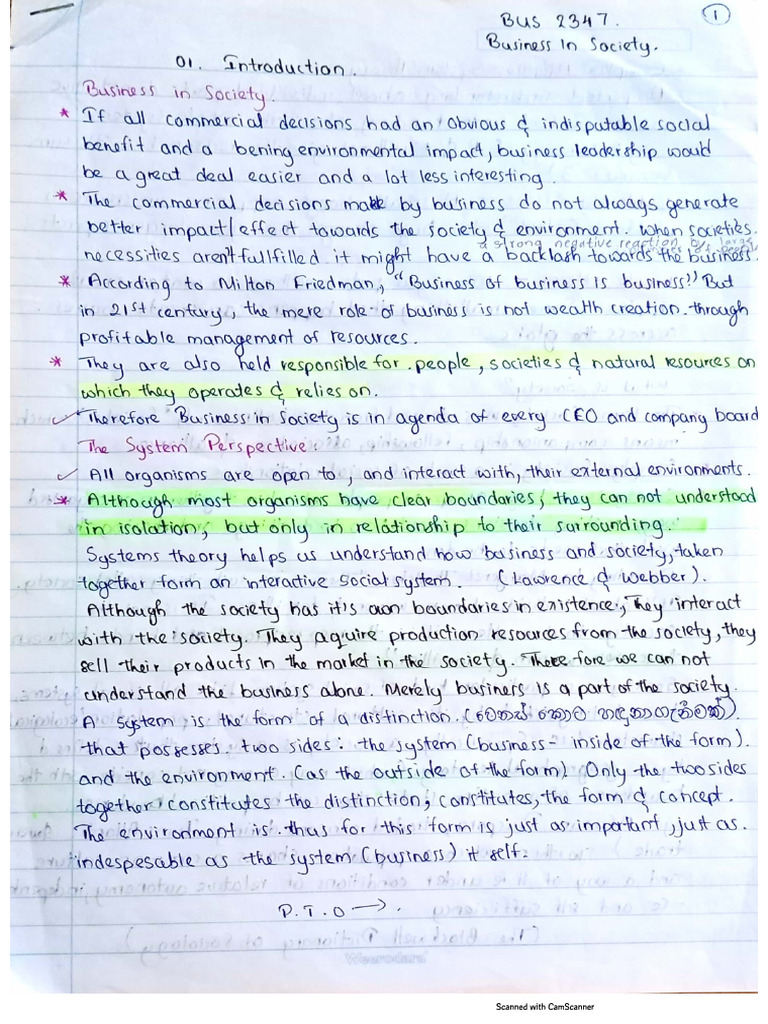 BUS 2347. 1
Business In Society.
01. Introduction.
Business in Society.
* If all commercial decisions had an obvious & indisputable social
benefit and a bening environmental impact, business leadership would
be a great deal easier and a lot less interesting.
* The commercial decisions made by business do not always generate
better impact/effect towards the society & environment. when societies
a strong negative reaction by large
necessities aren't fullfilled it might have a backlash towards the business.
* According to Milton Friedman, "Business of business is business" But
in 21st century, the mere role of business is not wealth creation. through
profitable management of resources.
* They are also held responsible for people, societies & natural resources on
which they operates & relies on.
✓ Therefore Business in Society is in agenda of every CEO and company board
The System Perspective.
✓ All organisms are open to, and interact with, their external environments.
* Although most organisms have clear boundaries, they can not understood
in isolation, but only in relationship to their surrounding.
Systems theory helps us understand how business and society, taken
together form an interactive social system. (Lawrence & Webber).
Although the society has it's own boundaries in existence, They interact
with the society. They aquire production resources from the society, they
sell their products in the market in the society. There fore we can not
understand the business alone. Merely business is a part of the society.
A system is the form of a distinction. (වෙනස් කොට හඳුනාගැනීමක්)
that possesses two sides: the system (business - inside of the form).
and the environment. (as the outside of the form) Only the two sides
together constitutes the distinction, constitutes, the form & concept.
The environment is thus for this form is just as important, just as
indespesable as the system (business) it self.
P.T.O →.
Weerodara
Scanned with CamScanner